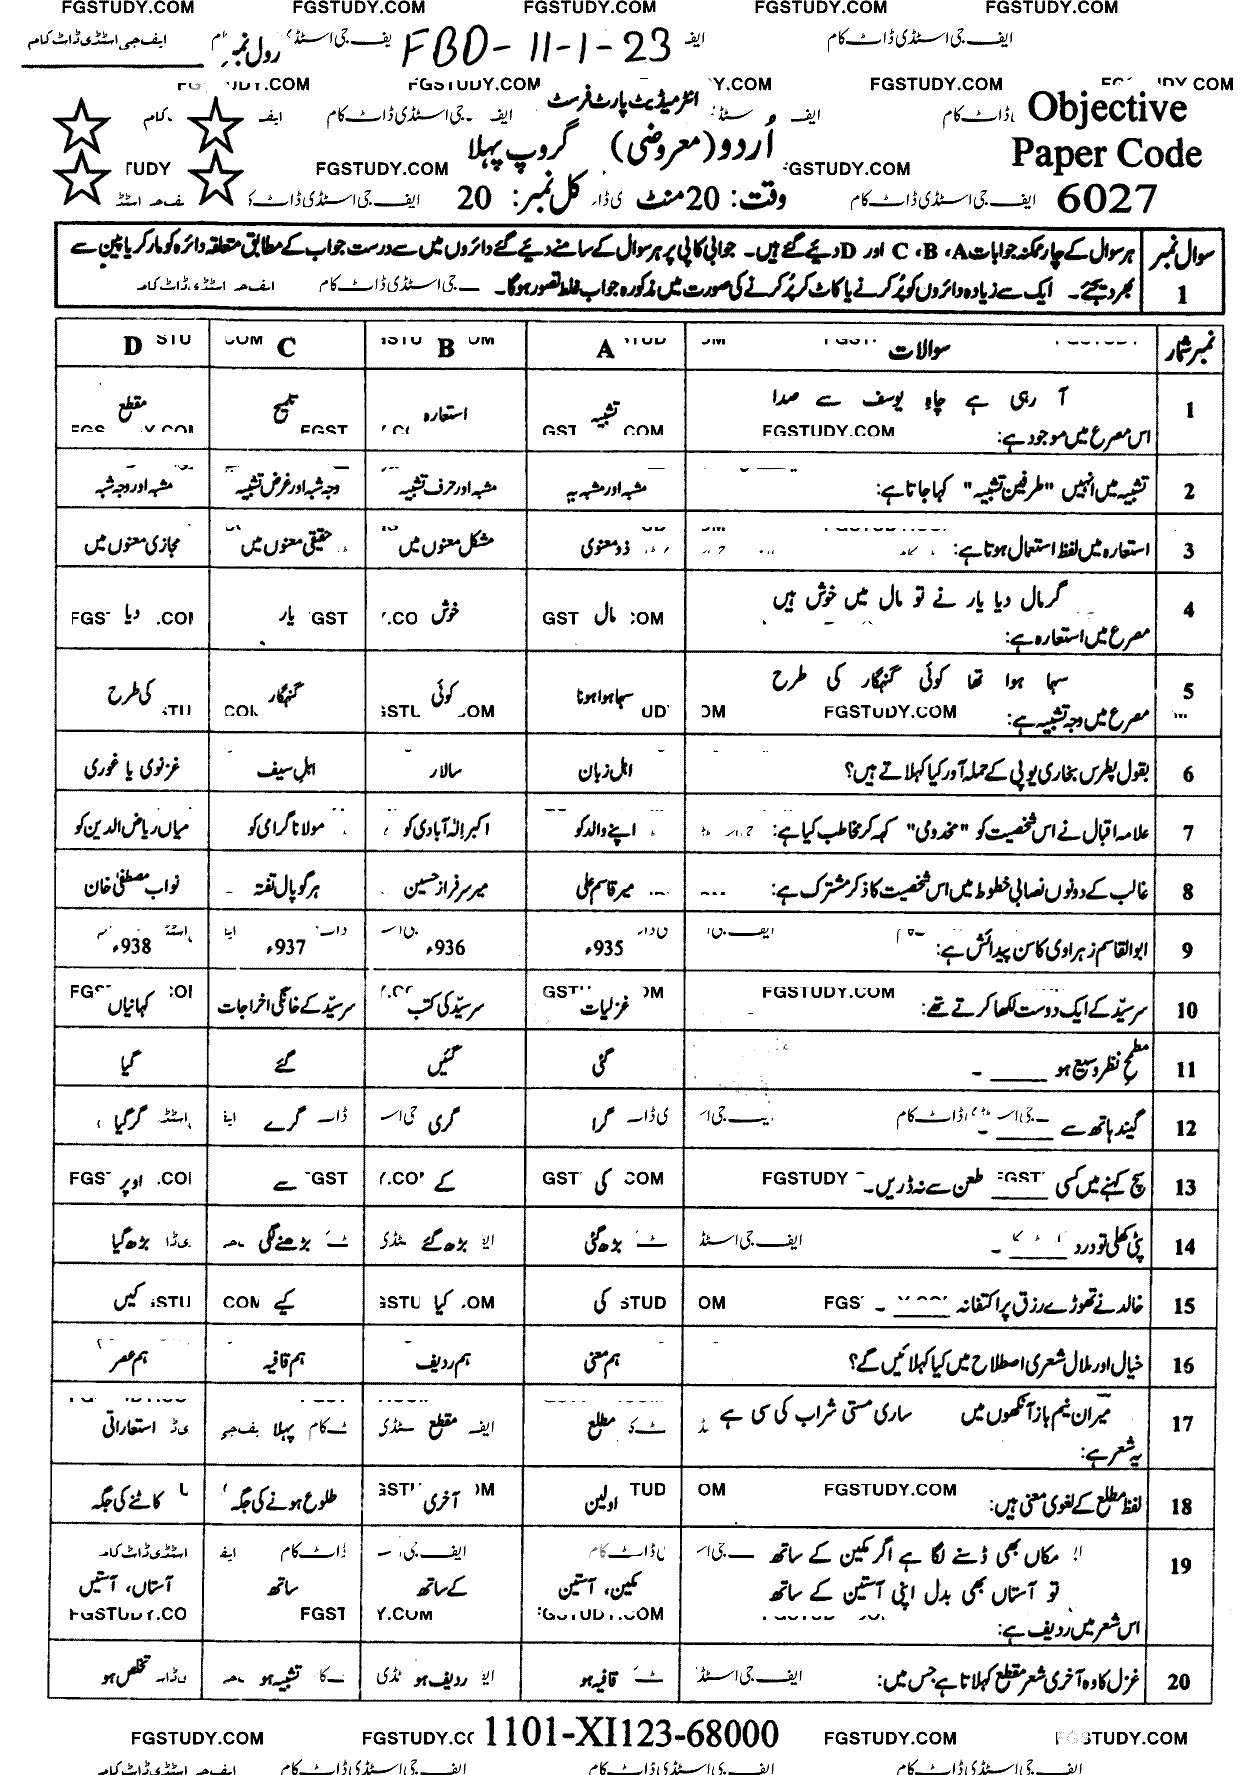 FGSTUDY.COM FGSTUDY.COM FGSTUDY.COM FGSTUDY.COM FGSTUDY.COM
رول نمبر FBD-11-1-23 ایف جی اسٹڈی ڈاٹ کام
انٹرمیڈیٹ پارٹ فرسٹ
Objective
اُردو (معروضی) گروپ پہلا
Paper Code
وقت: 20 منٹ کل نمبر: 20
6027
سوال نمبر 1 ہر سوال کے چار ممکنہ جوابات A، B، C اور D دیے گئے ہیں۔ جوابی کاپی پر ہر سوال کے سامنے دیے گئے دائروں میں سے درست جواب کے مطابق متعلقہ دائرہ کو مارکر یا پین سے
بھر دیجئے۔ ایک سے زیادہ دائروں کو پُر کرنے یا کاٹ کر پُر کرنے کی صورت میں مذکورہ جواب غلط تصور ہوگا۔
نمبر شمار سوالات A B C D
1 آ رہی ہے چاہِ یوسف سے صدا
اس مصرع میں موجود ہے: تشبیہ استعارہ تلمیح مقطع
2 تشبیہ میں انہیں "طرفین تشبیہ" کہا جاتا ہے: مشبہ اور مشبہ بہ مشبہ اور حرف تشبیہ وجہ شبہ اور غرض تشبیہ مشبہ اور وجہ شبہ
3 استعارہ میں لفظ استعمال ہوتا ہے: ذو معنوی مشکل معنوں میں حقیقی معنوں میں مجازی معنوں میں
4 گر مال دیا یار نے تو مال میں خوش ہیں
مصرع میں استعارہ ہے: مال خوش یار دیا
5 سہا ہوا تھا کوئی گنہگار کی طرح
مصرع میں وجہ تشبیہ ہے: سہا ہوا ہونا کوئی گنہگار کی طرح
6 بقول پطرس بخاری یو پی کے حملہ آور کیا کہلاتے ہیں؟ اہل زبان سالار اہل سیف غزنوی یا غوری
7 علامہ اقبال نے اس شخصیت کو "مخدومی" کہہ کر مخاطب کیا ہے: اپنے والد کو اکبر الٰہ آبادی کو مولانا گرامی کو میاں ریاض الدین کو
8 غالب کے دونوں نصابی خطوط میں اس شخصیت کا ذکر مشترک ہے: میر قاسم علی میر سرفراز حسین ہرگوپال تفتہ نواب مصطفیٰ خان
9 ابوالقاسم زہراوی کا سن پیدائش ہے: 935ء 936ء 937ء 938ء
10 سرسیّد کے ایک دوست لکھا کرتے تھے: غزلیات سرسیّد کی کتب سرسیّد کے خانگی اخراجات کہانیاں
11 مطمحِ نظر وسیع ہو ____ ۔ گئی گئیں گئے گیا
12 گیند ہاتھ سے ____ ۔ گرا گری گرے گر گیا
13 سچ کہنے میں کسی ____ طعن سے نہ ڈریں۔ کی کے سے اوپر
14 پٹی کھلی تو درد ____ ۔ بڑھ گئی بڑھ گئے بڑھنے لگی بڑھ گیا
15 خالد نے تھوڑے رزق پر اکتفا نہ ____ ۔ کی کیا کیے کیں
16 خیال اور ملال شعری اصطلاح میں کیا کہلائیں گے؟ ہم معنی ہم ردیف ہم قافیہ ہم عصر
17 میر ان نیم باز آنکھوں میں ساری مستی شراب کی سی ہے
یہ شعر ہے: مطلع مقطع پہلا استعاراتی
18 لفظ مطلع کے لغوی معنی ہیں: اولین آخری طلوع ہونے کی جگہ کاٹنے کی جگہ
19 مکاں بھی ڈسنے لگا ہے اگر مکین کے ساتھ
تو آستاں بھی بدل اپنی آستین کے ساتھ
اس شعر میں ردیف ہے: مکین، آستین کے ساتھ ساتھ آستاں، آستیں
20 غزل کا وہ آخری شعر مقطع کہلاتا ہے جس میں: قافیہ ہو ردیف ہو تشبیہ ہو تخلص ہو
1101-XI123-68000
FGSTUDY.COM FGSTUDY.COM FGSTUDY.COM
ایف جی اسٹڈی ڈاٹ کام